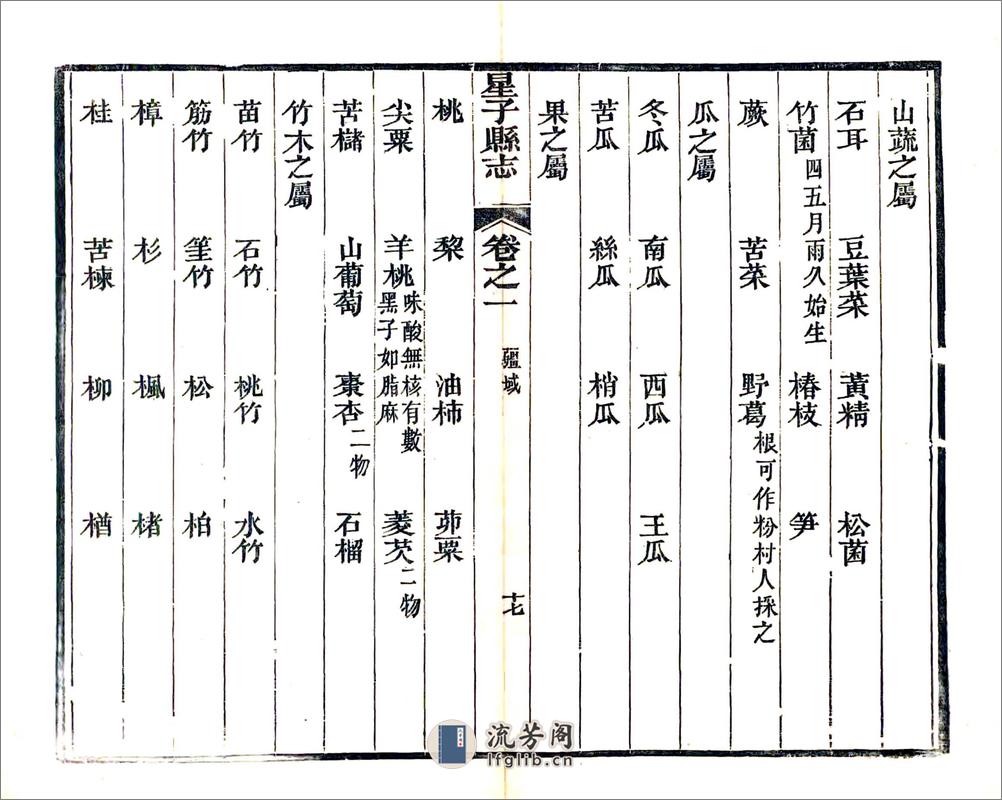 山蔬之屬
石耳 豆葉菜 黃精 松菌
竹菌四五月雨久始生 椿枝 笋
蕨 苦菜 野葛根可作粉村人採之
瓜之屬
冬瓜 南瓜 西瓜 王瓜
苦瓜 絲瓜 梢瓜
果之屬
星子縣志 卷之一 疆域 十七
桃 棃 油柿 茆栗
尖粟 羊桃味酸無核有數黑子如脂麻 菱芡二物
苦櫧 山葡萄 棗杏二物 石榴
竹木之屬
苗竹 石竹 桃竹 水竹
筋竹 筀竹 松 柏
樟 杉 楓 楮
桂 苦楝 柳 楢
流芳阁
lfglib.cn